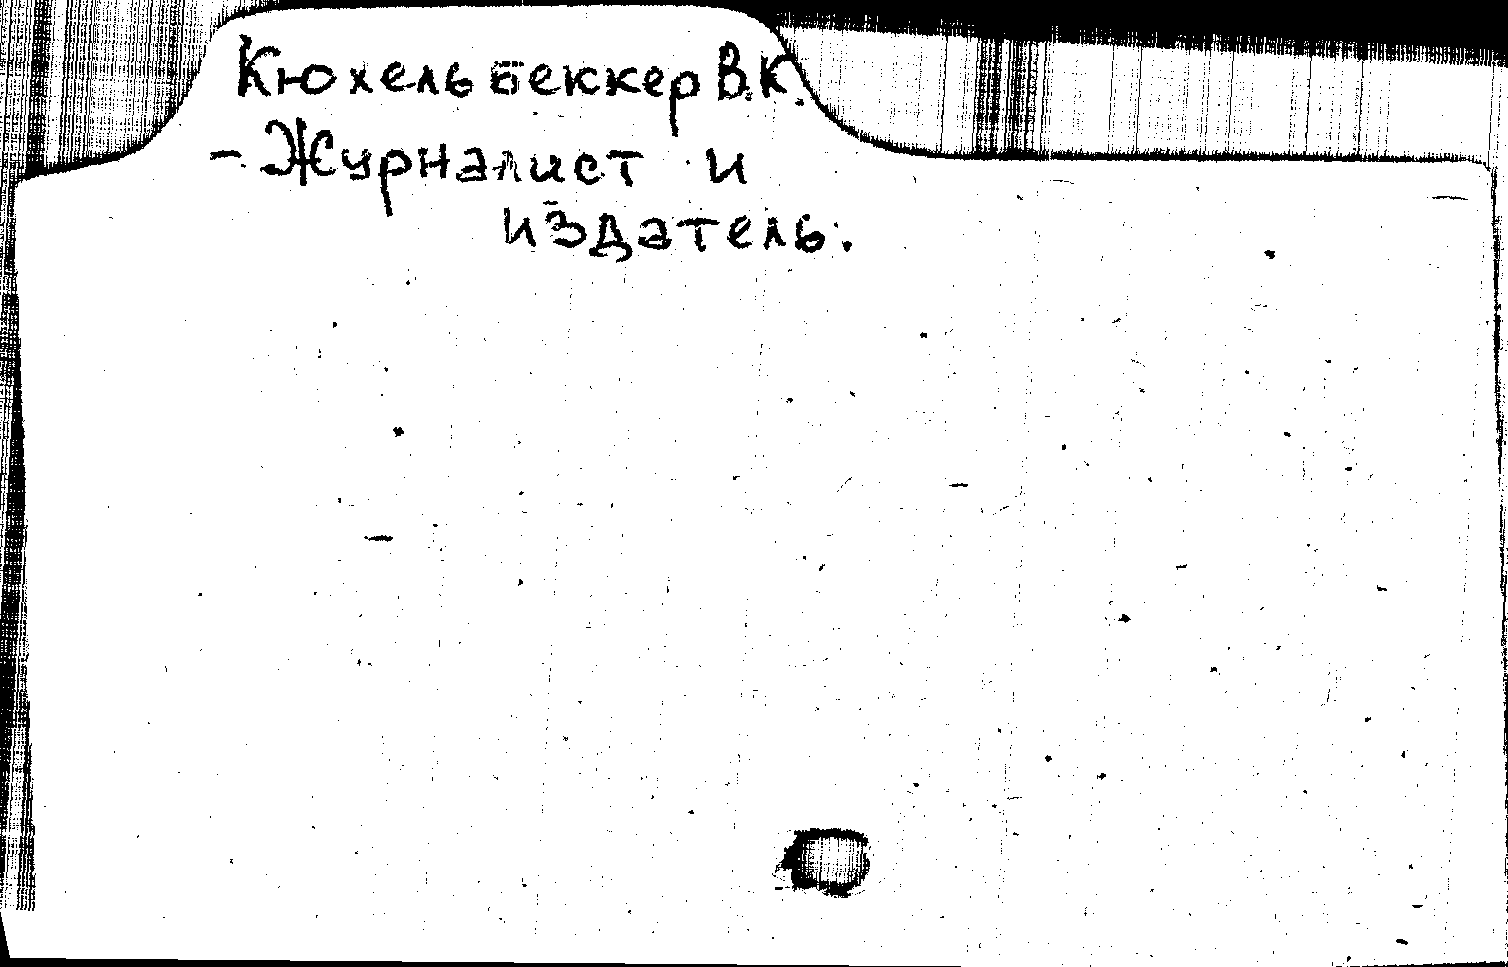 Кюхельбеккер В.К.
- Журналист и
издатель.